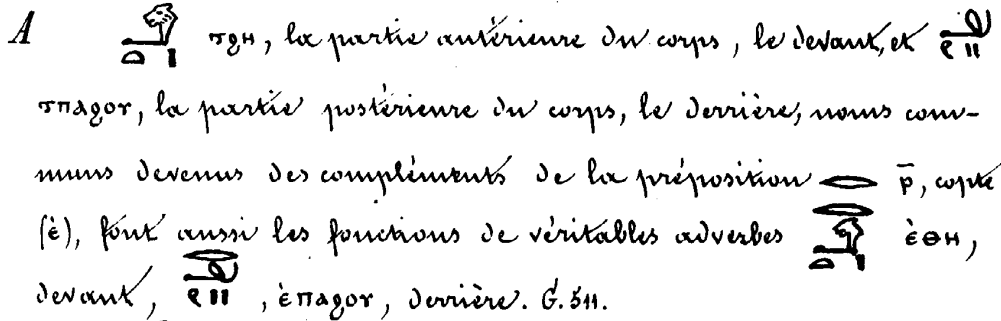 A 𓄂𓏏𓏤 ⲧϩⲏ, la partie antérieure du corps, le devant, et 𓄖
ⲧⲡⲁϩⲟⲩ, la partie postérieure du corps, le derrière, noms com-
muns devenus des compléments de la préposition 𓂋 ⲣ̄, copte
(ⲉ̀), font aussi les fonctions de véritables adverbes 𓂋𓄂𓏏𓏤 ⲉ̀ⲑⲏ,
devant, 𓂋𓄖, ⲉ̀ⲡⲁϩⲟⲩ, derrière. G. 511.